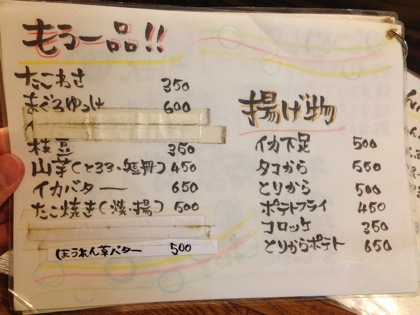 もう一品!!
たこわさ 350
まぐろゆっけ 600
枝豆 350
山芋(とろろ・短冊) 450
イカバター 650
たこ焼き(焼・揚) 500
ほうれん草バター 500
揚げ物
イカ下足 500
タコから 550
とりから 500
ポテトフライ 450
コロッケ 350
とりからポテト 650